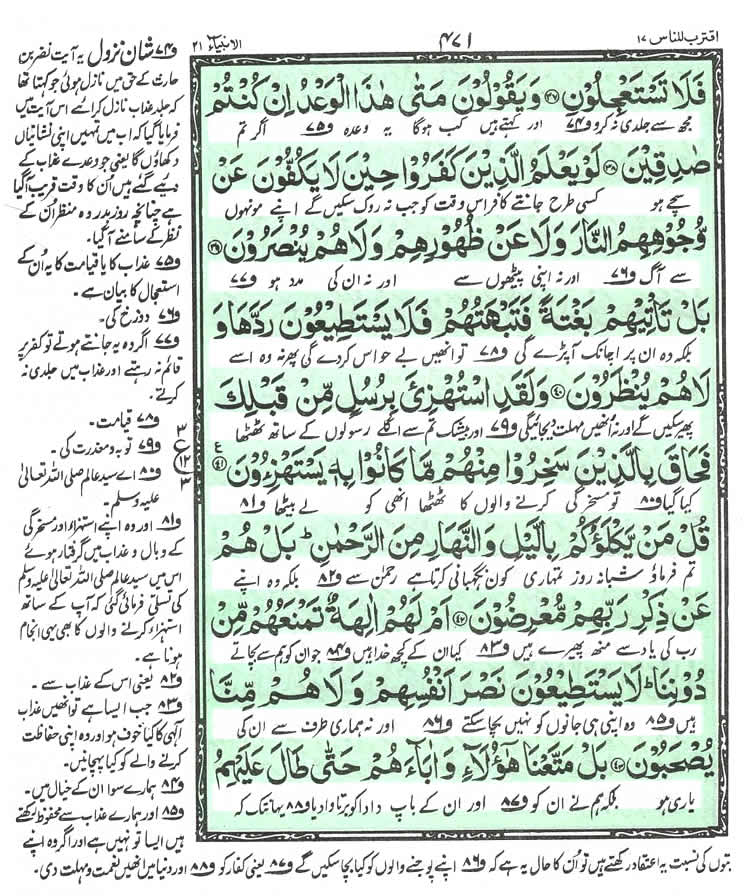 اقترب للناس ۱۷
۴۷۱
الانبیاء ۲۱
فَلَا تَسْتَعْجِلُوْنِ ﴿۳۷﴾ وَیَقُوْلُوْنَ مَتٰى هٰذَا الْوَعْدُ اِنْ كُنْتُمْ
مجھ سے جلدی نہ کرو و۷۴ اور کہتے ہیں کب ہوگا یہ وعدہ و۷۵ اگر تم
صٰدِقِیْنَ ﴿۳۸﴾ لَوْ یَعْلَمُ الَّذِیْنَ كَفَرُوْا حِیْنَ لَا یَكُفُّوْنَ عَنْ
سچے ہو کسی طرح جانتے کافر اس وقت کو جب نہ روک سکیں گے اپنے مونہوں
وُّجُوْهِهِمُ النَّارَ وَلَا عَنْ ظُهُوْرِهِمْ وَلَا هُمْ یُنْصَرُوْنَ ﴿۳۹﴾
سے آگ و۷۶ اور نہ اپنی پیٹھوں سے اور نہ ان کی مدد ہو و۷۷
بَلْ تَاْتِیْهِمْ بَغْتَةً فَتَبْهَتُهُمْ فَلَا یَسْتَطِیْعُوْنَ رَدَّهَا وَ
بلکہ وہ ان پر اچانک آپڑے گی و۷۸ تو انھیں بے حواس کردے گی پھر نہ وہ اسے
لَا هُمْ یُنْظَرُوْنَ ﴿۴۰﴾ وَلَقَدِ اسْتُهْزِئَ بِرُسُلٍ مِّنْ قَبْلِكَ
پھیر سکیں گے اور نہ انھیں مہلت دیجائیگی و۷۹ اور بیشک تم سے اگلے رسولوں کے ساتھ ٹھٹھا
فَحَاقَ بِالَّذِیْنَ سَخِرُوْا مِنْهُمْ مَّا كَانُوْا بِهٖ یَسْتَهْزِءُوْنَ ﴿۴۱﴾
کیا گیا و۸۰ تو مسخرگی کرنے والوں کا ٹھٹھا انھی کو لے بیٹھا و۸۱
قُلْ مَنْ یَّكْلَؤُكُمْ بِالَّیْلِ وَالنَّهَارِ مِنَ الرَّحْمٰنِ ؕ بَلْ هُمْ
تم فرماؤ شبانہ روز تمہاری کون نگہبانی کرتا ہے رحمٰن سے و۸۲ بلکہ وہ اپنے
عَنْ ذِكْرِ رَبِّهِمْ مُّعْرِضُوْنَ ﴿۴۲﴾ اَمْ لَهُمْ اٰلِهَةٌ تَمْنَعُهُمْ مِّنْ
رب کی یاد سے منھ پھیرے ہیں و۸۳ کیا ان کے کچھ خدا ہیں و۸۴ جو ان کو ہم سے بچاتے
دُوْنِنَا ؕ لَا یَسْتَطِیْعُوْنَ نَصْرَ اَنْفُسِهِمْ وَلَا هُمْ مِّنَّا
ہیں و۸۵ وہ اپنی ہی جانوں کو نہیں بچا سکتے و۸۶ اور نہ ہماری طرف سے ان کی
یُصْحَبُوْنَ ﴿۴۳﴾ بَلْ مَتَّعْنَا هٰۤؤُلَآءِ وَ اٰبَآءَهُمْ حَتّٰى طَالَ عَلَیْهِمُ
یاری ہو بلکہ ہم نے ان کو و۸۷ اور ان کے باپ دادا کو برتاوا دیا و۸۸ یہانتک کہ
و۷۴ شان نزول یہ آیت نضر بن
حارث کے حق میں نازل ہوئی جو کہتا تھا
کہ جلد عذاب نازل کرائیے اس آیت میں
فرمایا گیا کہ اب میں تمہیں اپنی نشانیاں
دکھاؤں گا یعنی جو وعدے عذاب کے
دیئے گئے ہیں ان کا وقت قریب آگیا
ہے چنانچہ روز بدر وہ منظر ان کے
نظر کے سامنے آگیا۔
و۷۵ عذاب کا یا قیامت کا یہ ان کے
استعجال کا بیان ہے۔
و۷۶ دوزخ کی۔
و۷۷ اگر وہ یہ جانتے ہوتے تو کفر پر
قائم نہ رہتے اور عذاب میں جلدی نہ
کرتے۔
و۷۸ قیامت۔
و۷۹ توبہ و معذرت کی۔
و۸۰ اے سید عالم صلی اللہ تعالیٰ
علیہ وسلم۔
و۸۱ اور وہ اپنے استہزاء اور مسخرگی
کے وبال و عذاب میں گرفتار ہوئے
اس میں سید عالم صلی اللہ تعالیٰ علیہ وسلم
کی تسلی فرمائی گئی کہ آپ کے ساتھ
استہزاء کرنے والوں کا بھی یہی انجام
ہونا ہے۔
و۸۲ یعنی اس کے عذاب سے۔
و۸۳ جب ایسا ہے تو انھیں عذاب
الٰہی کا کیا خوف ہو اور وہ اپنی حفاظت
کرنے والے کو کیا پہچانیں۔
و۸۴ ہمارے سوا ان کے خیال میں۔
و۸۵ اور ہمارے عذاب سے محفوظ رکھتے
ہیں ایسا تو نہیں ہے اور اگر وہ اپنے
بتوں کی نسبت یہ اعتقاد رکھتے ہیں تو ان کا حال یہ ہے کہ و۸۶ اپنے پوجنے والوں کو کیا بچا سکیں گے و۸۷ یعنی کفار کو و۸۸ اور دنیا میں انھیں نعمت و مہلت دی۔
۳
ع
۱۲
۳